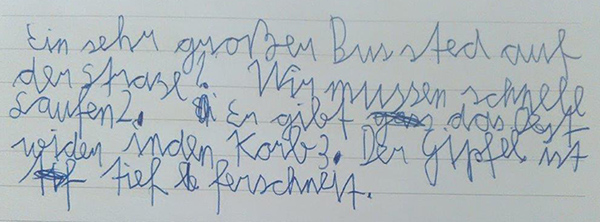 Ein sehr großer Bus sted auf
der straze1. Wir mussen schnele
Laufen2. Er gibt das Obst
wider in den Korb3. Der Gipfel ist
tief ferschneit.